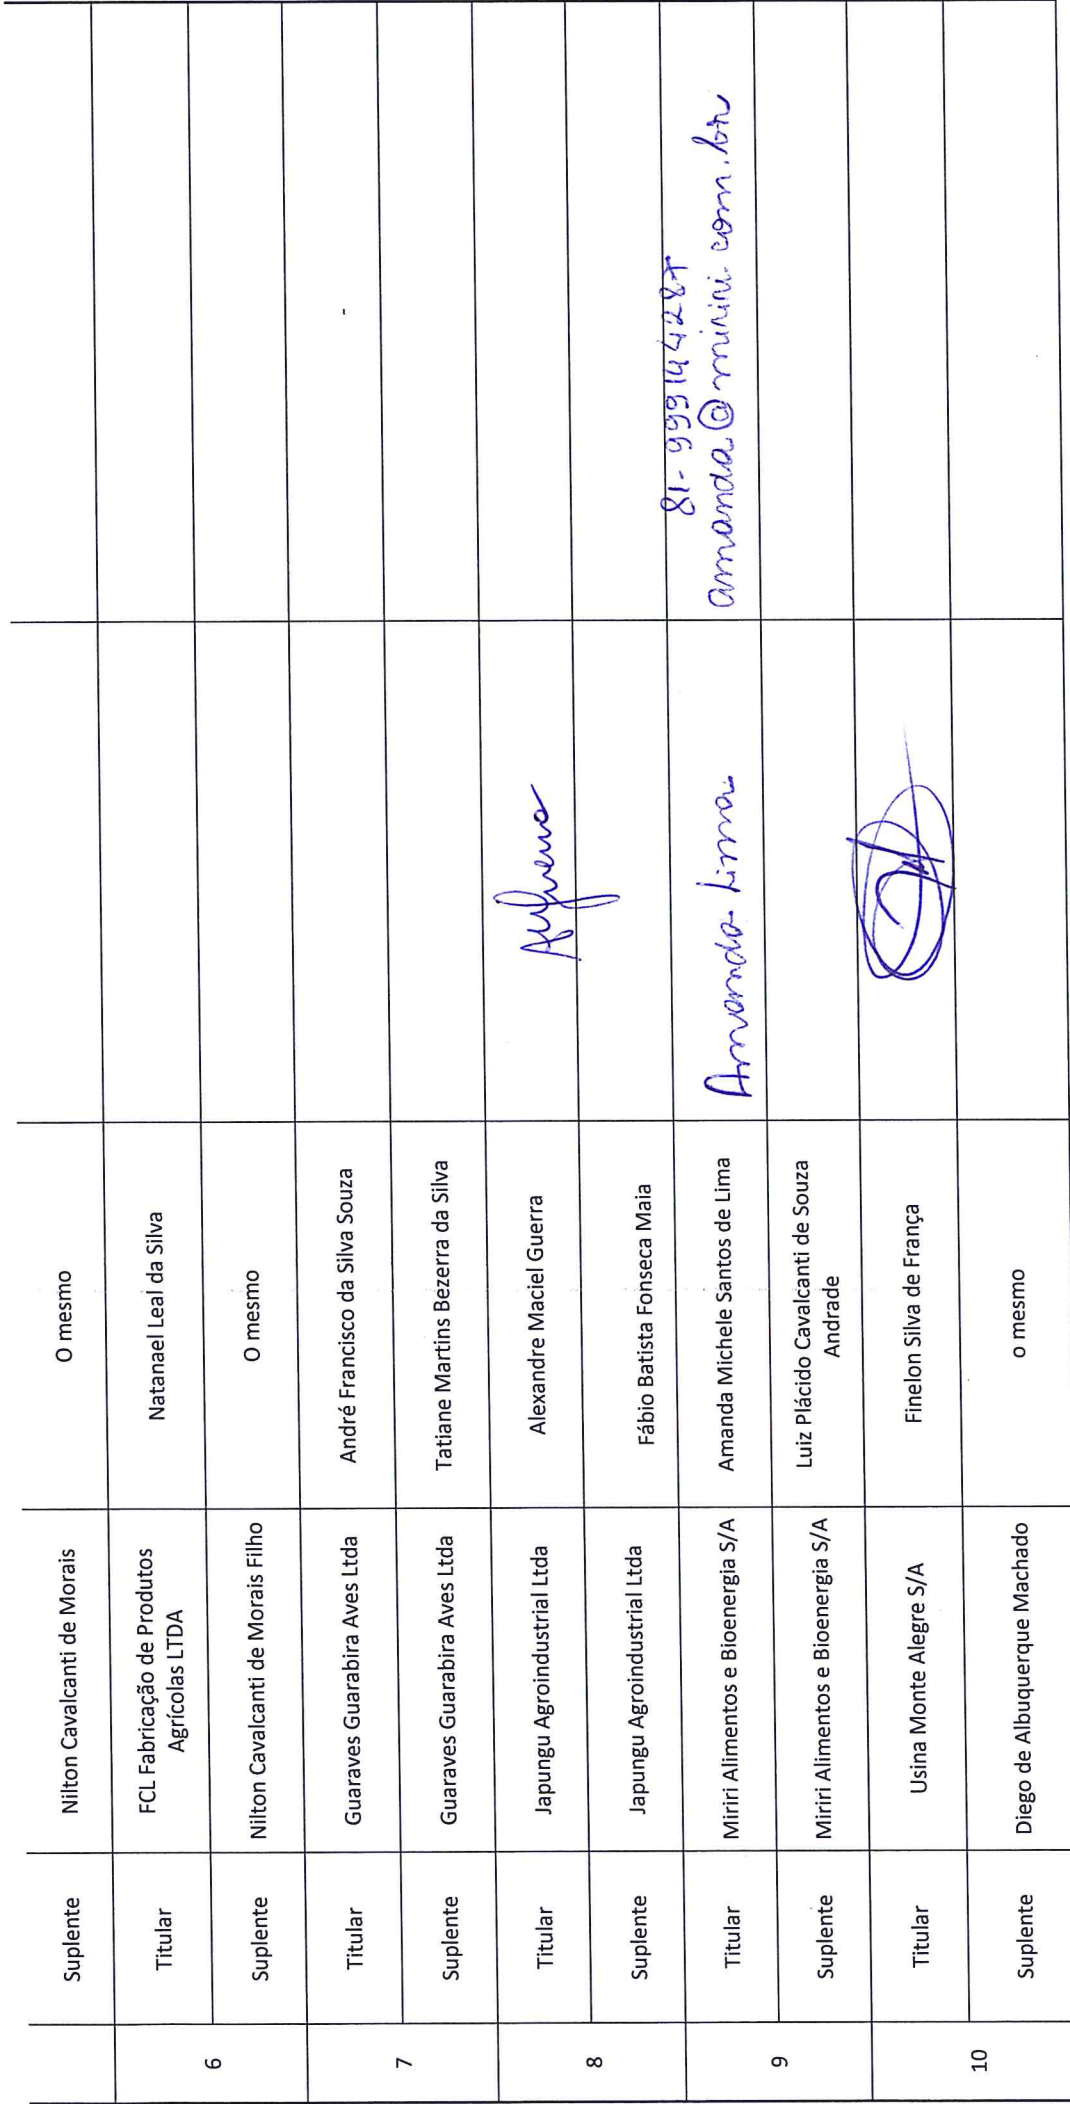 Suplente Nilton Cavalcanti de Morais O mesmo
6 Titular FCL Fabricação de Produtos
Agrícolas LTDA Natanael Leal da Silva
Suplente Nilton Cavalcanti de Morais Filho O mesmo
7 Titular Guaraves Guarabira Aves Ltda André Francisco da Silva Souza
Suplente Guaraves Guarabira Aves Ltda Tatiane Martins Bezerra da Silva
8 Titular Japungu Agroindustrial Ltda Alexandre Maciel Guerra
Suplente Japungu Agroindustrial Ltda Fábio Batista Fonseca Maia
81-999144287
9 Titular Miriri Alimentos e Bioenergia S/A Amanda Michele Santos de Lima Amanda Lima amanda@miriri.com.br
Suplente Miriri Alimentos e Bioenergia S/A Luiz Plácido Cavalcanti de Souza
Andrade
10 Titular Usina Monte Alegre S/A Finelon Silva de França
Suplente Diego de Albuquerque Machado o mesmo